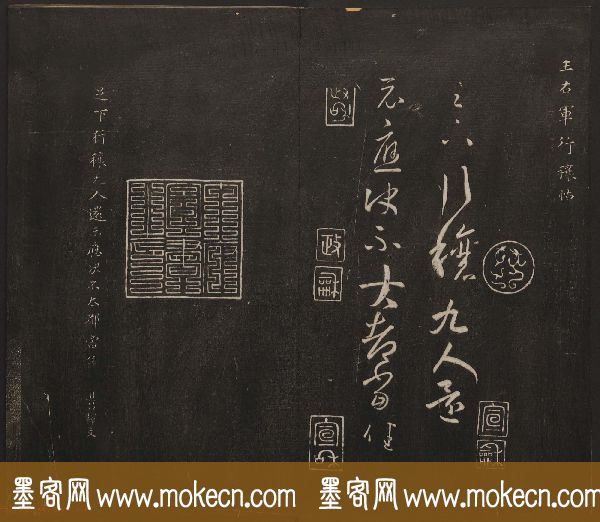 王右軍行穰帖
足下行穰九人還
示應決不大都當佳
政和
宣和
政和
宣和
足下行穰九人還示應決不大都當佳
釋文
墨客网 www.mokecn.com
墨客网 www.mokecn.com